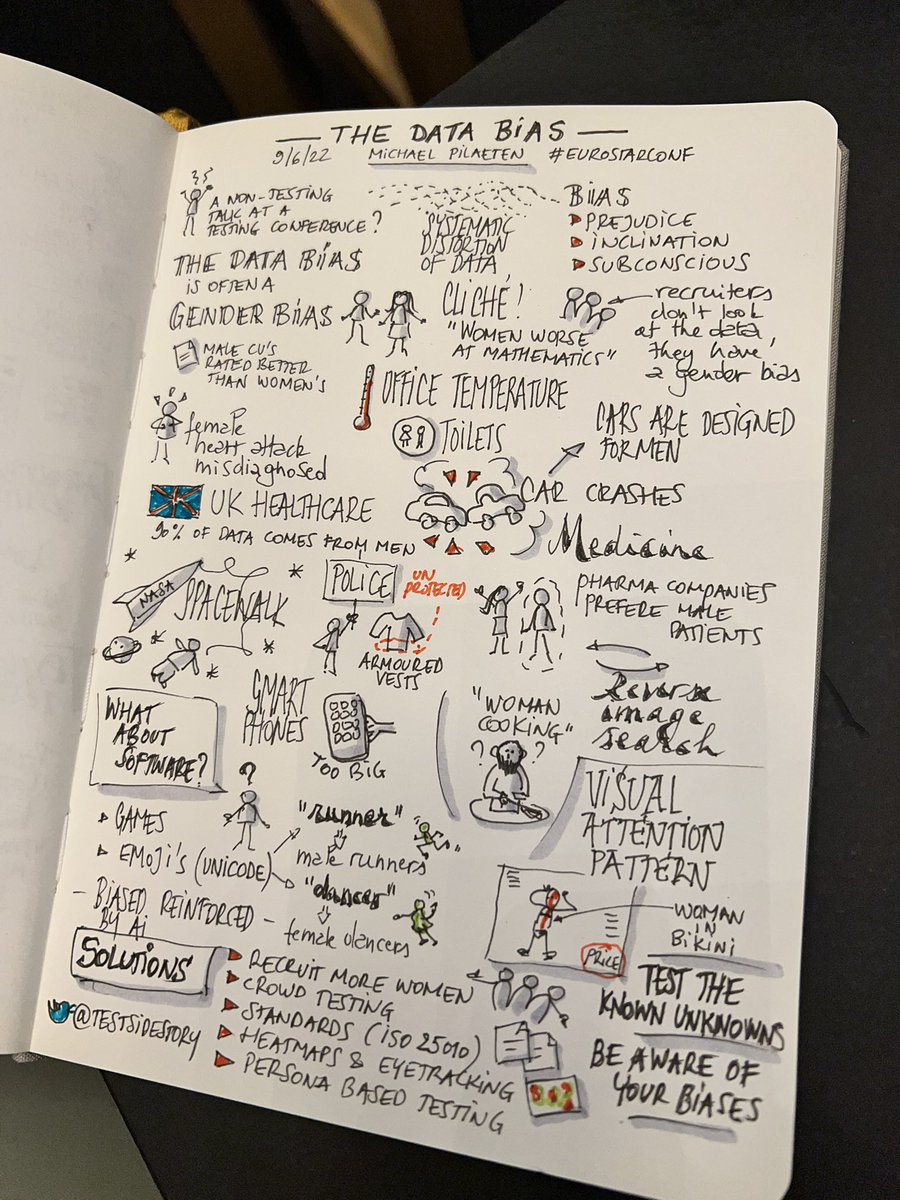 THE DATA BIAS
9/6/22 MICHAEL PILAETEN #EUROSTARCONF
A NON-TESTING
TALK AT A
TESTING CONFERENCE?
SYSTEMATIC
DISTORTION
OF DATA
BIAS
PREJUDICE
INCLINATION
SUBCONSCIOUS
THE DATA BIAS
IS OFTEN A
GENDER BIAS
CLICHÉ!
"WOMEN WORSE
AT MATHEMATICS"
recruiters
don't look
at the data,
they have
a gender bias
MALE CV'S
RATED BETTER
THAN WOMEN'S
OFFICE TEMPERATURE
TOILETS
CARS ARE DESIGNED
FOR MEN
female
heart attack
misdiagnosed
CAR CRASHES
UK HEALTHCARE
90% OF DATA COMES FROM MEN
Medicine
PHARMA COMPANIES
PREFERE MALE
PATIENTS
NASA
SPACEWALK
POLICE
UN
PROTECTED
ARMOURED
VESTS
SMART
PHONES
TOO BIG
"WOMAN
COOKING"
? ?
Reverse
image
search
WHAT
ABOUT
SOFTWARE?
?
GAMES
EMOJI'S (UNICODE)
"runner"
male runners
"dancer"
female dancers
- BIASED REINFORCED -
BY AI
VISUAL
ATTENTION
PATTERN
WOMAN
IN
BIKINI
PRICE
SOLUTIONS
RECRUIT MORE WOMEN
CROWD TESTING
STANDARDS (ISO 25010)
HEATMAPS & EYETRACKING
PERSONA BASED TESTING
TEST THE
KNOWN UNKNOWNS
BE AWARE OF
YOUR BIASES
@TESTSIDESTORY